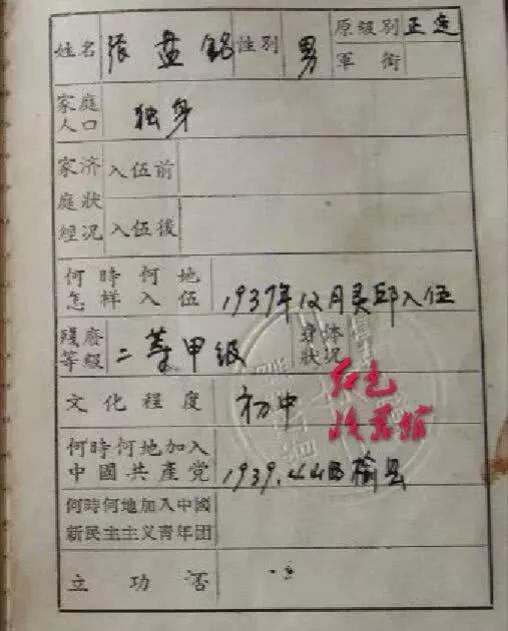 姓名 張盘銘 性别 男 原級别 正連
軍銜
家庭人口 独身
家庭經济狀况 入伍前
入伍後
何時何地怎样入伍 1937年12月灵邱入伍
殘廢等級 二等甲级 身体狀况
文化程度 初中
红色收藏馆
何時何地加入中國共產党 1939.4.4日榆
何時何地加入中國新民主主义青年团
立功否